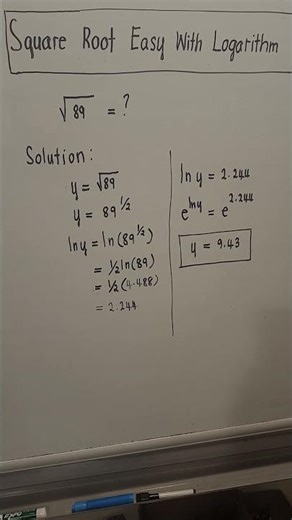 Square Root Easy With Logarithm
√89 = ?
Solution:
y = √89
y = 89^1/2
ln y = ln(89^1/2)
= 1/2 ln(89)
= 1/2 (4.488)
= 2.244
ln y = 2.244
e^ln y = e^2.244
y = 9.43